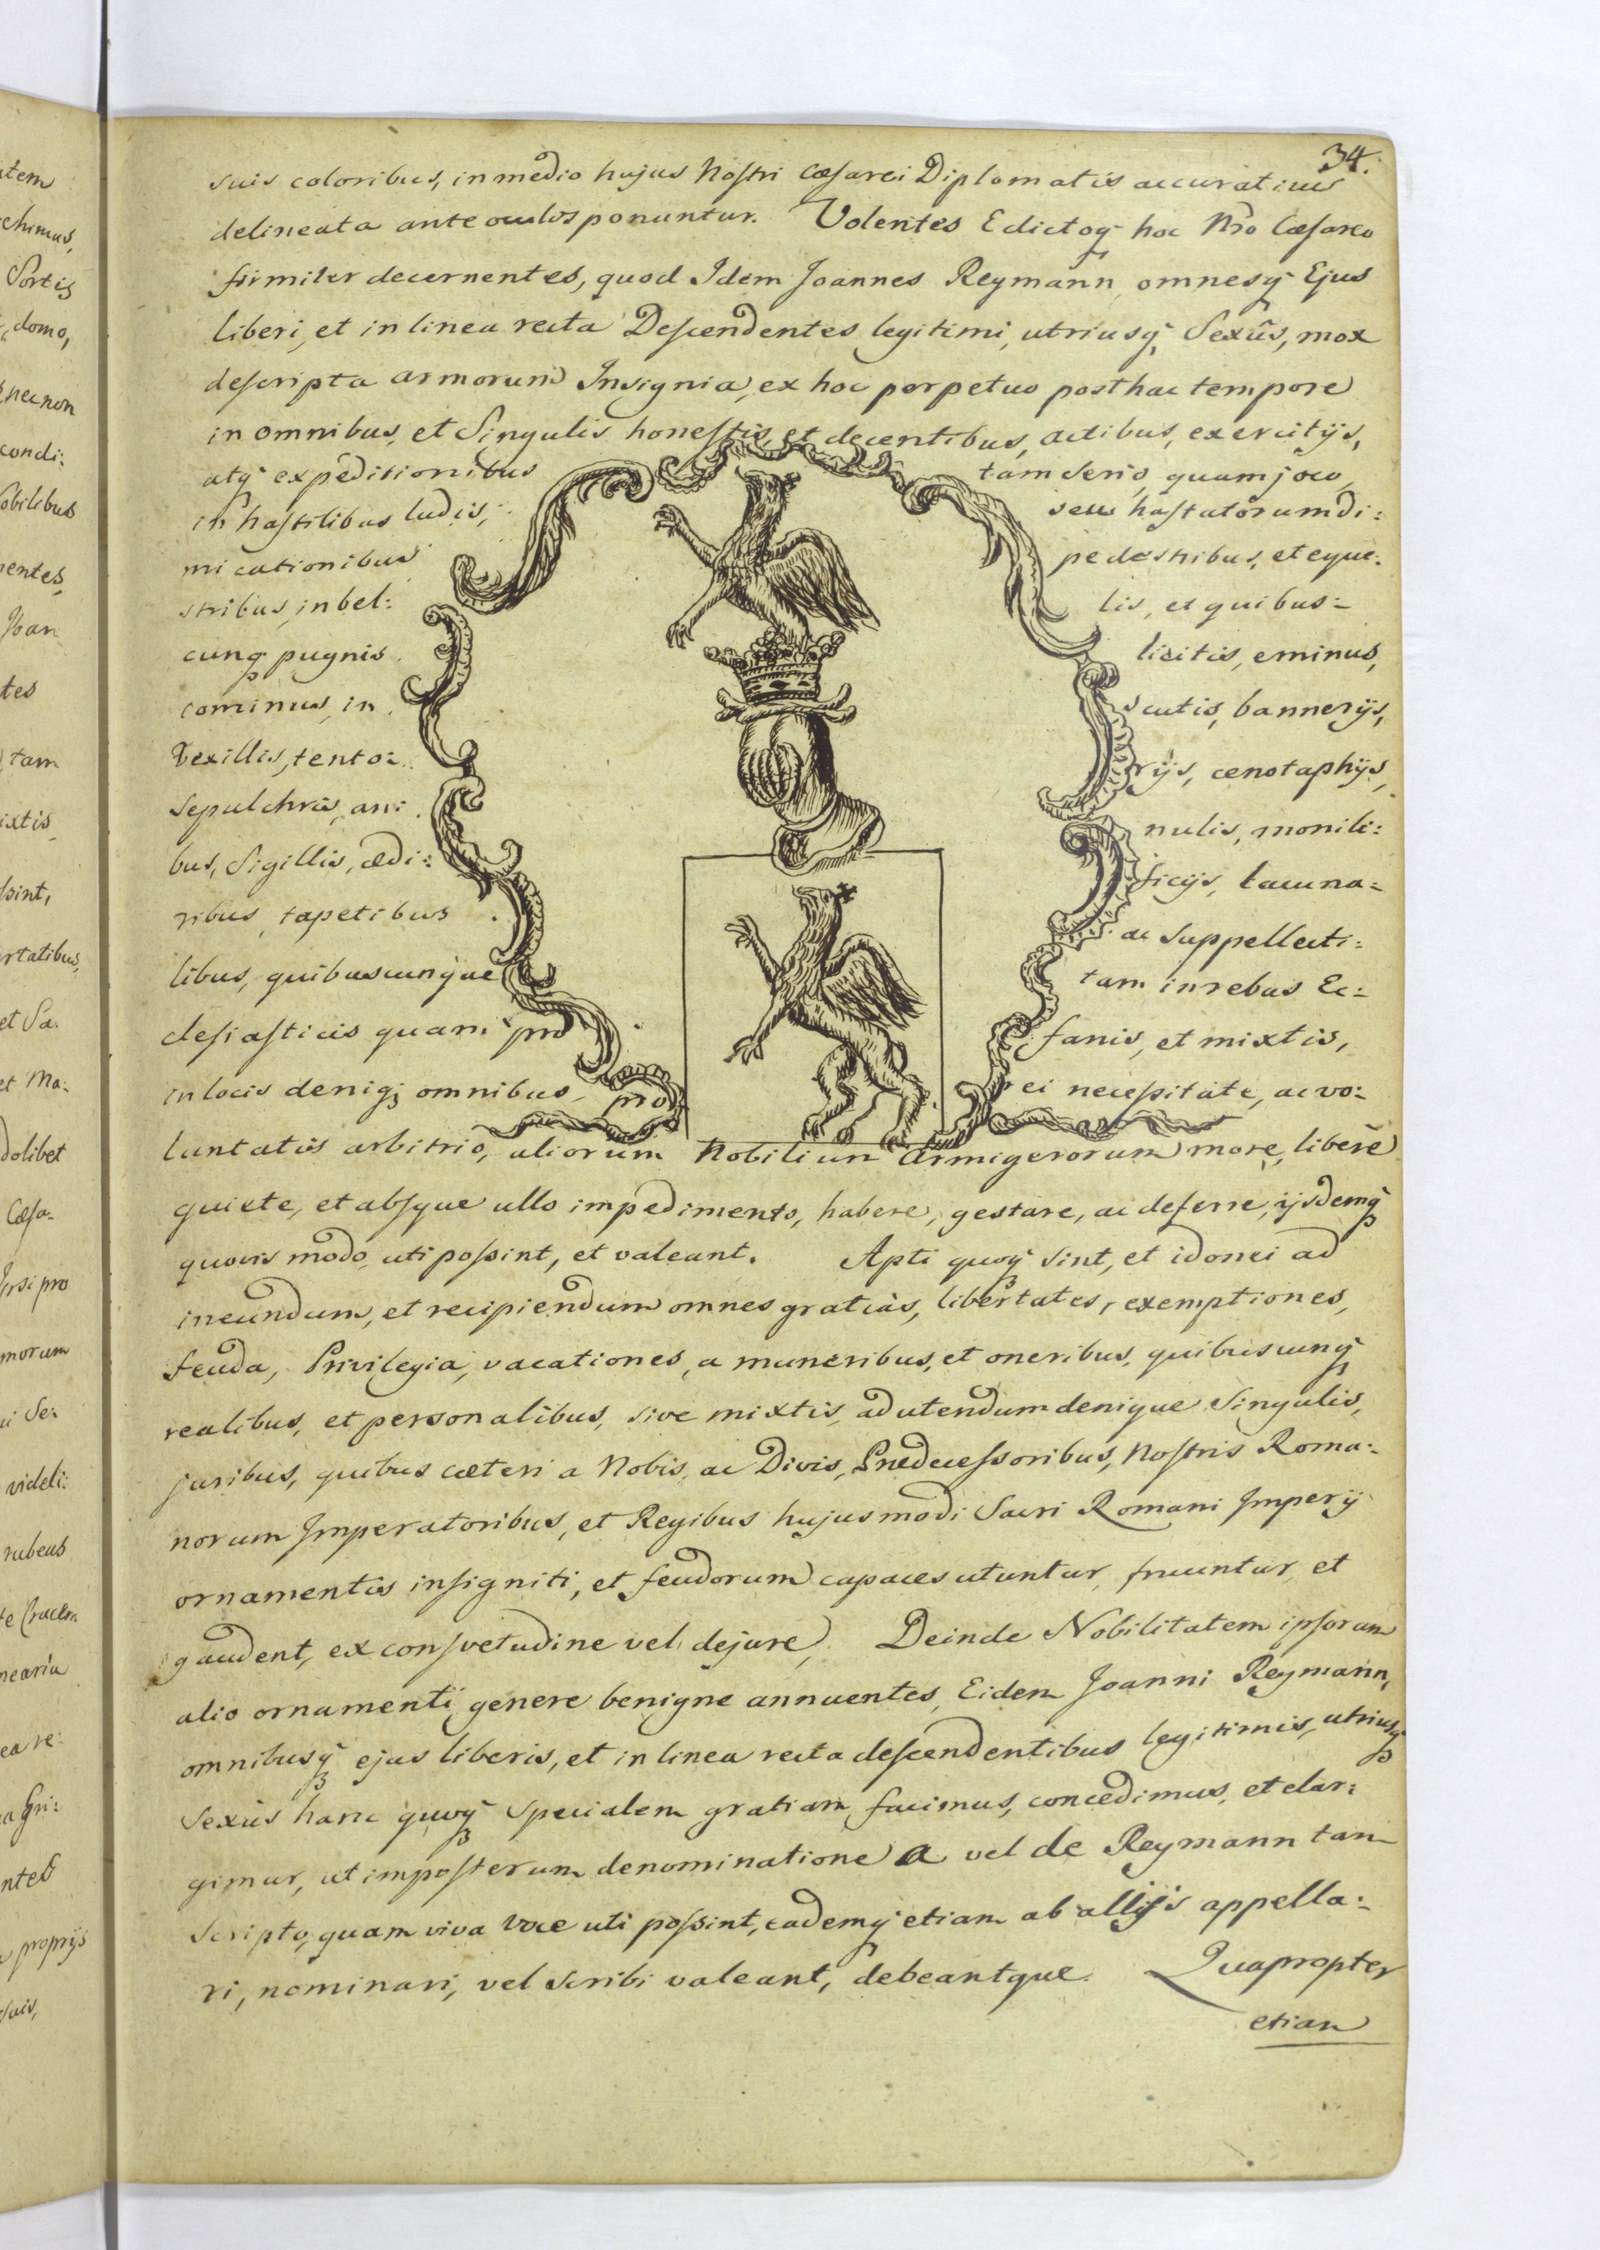 34.
suis coloribus, in medio hujus Nostri Cæsarei Diplomatis accuratius
delineata ante oculos ponuntur. Volentes Edictoq hoc Nro Cæsareo
firmiter decernentes, quod Idem Joannes Reymann, omnesq Ejus
liberi, et in linea recta Descendentes legitimi, utriusq Sexûs, mox
descripta armorum Insignia, ex hoc perpetuo posthac tempore
in omnibus, et Singulis honestis, et decentibus, actibus, exercitijs,
atq expeditionibus tam serio, quam joco
in hastilibus ludis, seu hastatorum di:
micationibus pedestribus, et eque:
stribus, in bel: lis, et quibus=
cunq pugnis licitis, eminus,
cominus, in scutis, bannerijs,
Vexillis, tento= rijs, cenotaphijs,
Sepulchris, an: nulis, monili:
bus, Sigillis, ædi: ficijs, lacuna=
ribus, tapetibus ac Suppellecti:
libus, quibuscunque tam in rebus Ec:
clesiasticis quam pro fanis, et mixtis,
in locis deniq omnibus pro rei necessitate, ac vo:
luntatis arbitrio, aliorum Nobilium Armigerorum more, liberè
quiete, et absque ullo impedimento, habere, gestare, ac deferre, ijsdemq
quovis modo uti possint, et valeant. Apti quoq sint, et idonei ad
ineundum, et recipiendum omnes gratias, libertates, exemptiones,
feuda, Privilegia, vacationes, a muneribus, et oneribus, quibuscunq
realibus, et personalibus, sive mixtis, ad utendum denique Singulis,
juribus, quibus cæteri a Nobis, ac Divis, Prædecessoribus, Nostris Roma:
norum Imperatoribus, et Regibus hujusmodi Sacri Romani Imperij
ornamentis insigniti, et feudorum capaces utuntur, fruuntur, et
gaudent, ex consvetudine vel dejure, Deinde Nobilitatem ipsorum
alio ornamenti genere benigne annuentes, Eidem Joanni Reymann,
omnibusq ejus liberis, et in linea recta descendentibus legitimis, utriusq
Sexûs hanc quoq specialem gratiam, facimus, concedimus, et elar:
gimur, ut imposterum denominatione a vel de Reymann tam
scripto, quam viva voce uti possint, eademq etiam ab alijs appella:
ri, nominari, vel scribi valeant, debeantque. Quapropter
etiam